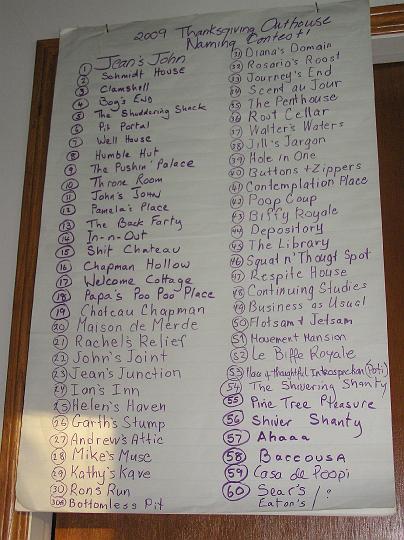 2009 Thanksgiving Outhouse
Naming Contest!
1 Jean's John
2 Schmidt House
3 Clamshell
4 Bog's End
5 The Shuddering Shack
6 Pit Portal
7 Well House
8 Humble Hut
9 The Pushin' Palace
10 Throne Room
11 John's John
12 Pamela's Place
13 The Back Forty
14 In-n-Out
15 Shit Chateau
16 Chapman Hollow
17 Welcome Cottage
18 Papa's Poo Poo Place
19 Chateau Chapman
20 Maison de Merde
21 Rachel's Relief
22 John's Joint
23 Jean's Junction
24 Ian's Inn
25 Helen's Haven
26 Garth's Stump
27 Andrew's Attic
28 Mike's Muse
29 Kathy's Kave
30 Ron's Run
30a Bottomless Pit
31 Diana's Domain
32 Rosario's Roost
33 Journey's End
34 Scent au Jour
35 The Penthouse
36 Root Cellar
37 Walter's Waters
38 Jill's Jargon
39 Hole in One
40 Buttons + Zippers
41 Contemplation Place
42 Poop Coup
43 Biffy Royale
44 Depository
45 The Library
46 Squat n' Thougt Spot
47 Respite House
48 Continuing Studies
49 Business as Usual
50 Flotsam & Jetsam
51 Movement Mansion
52 Le Biffe Royale
53 of thoughtful Introspection (Poti)
54 The Shivering Shanty
55 Pine Tree Pleasure
56 Shiver Shanty
57 Ahaaa
58 Baccousa
59 Casa de Poopi
60 Sear's / ?
Eaton's /